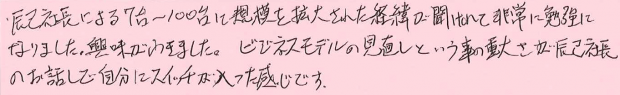 辰己社長による7台～100台に規模を拡大された経緯が聞けれて非常に勉強に
なりました。興味がわきました。ビジネスモデルの見直しという事の重大さが辰己社長
のお話しで自分にスイッチが入った感じです。